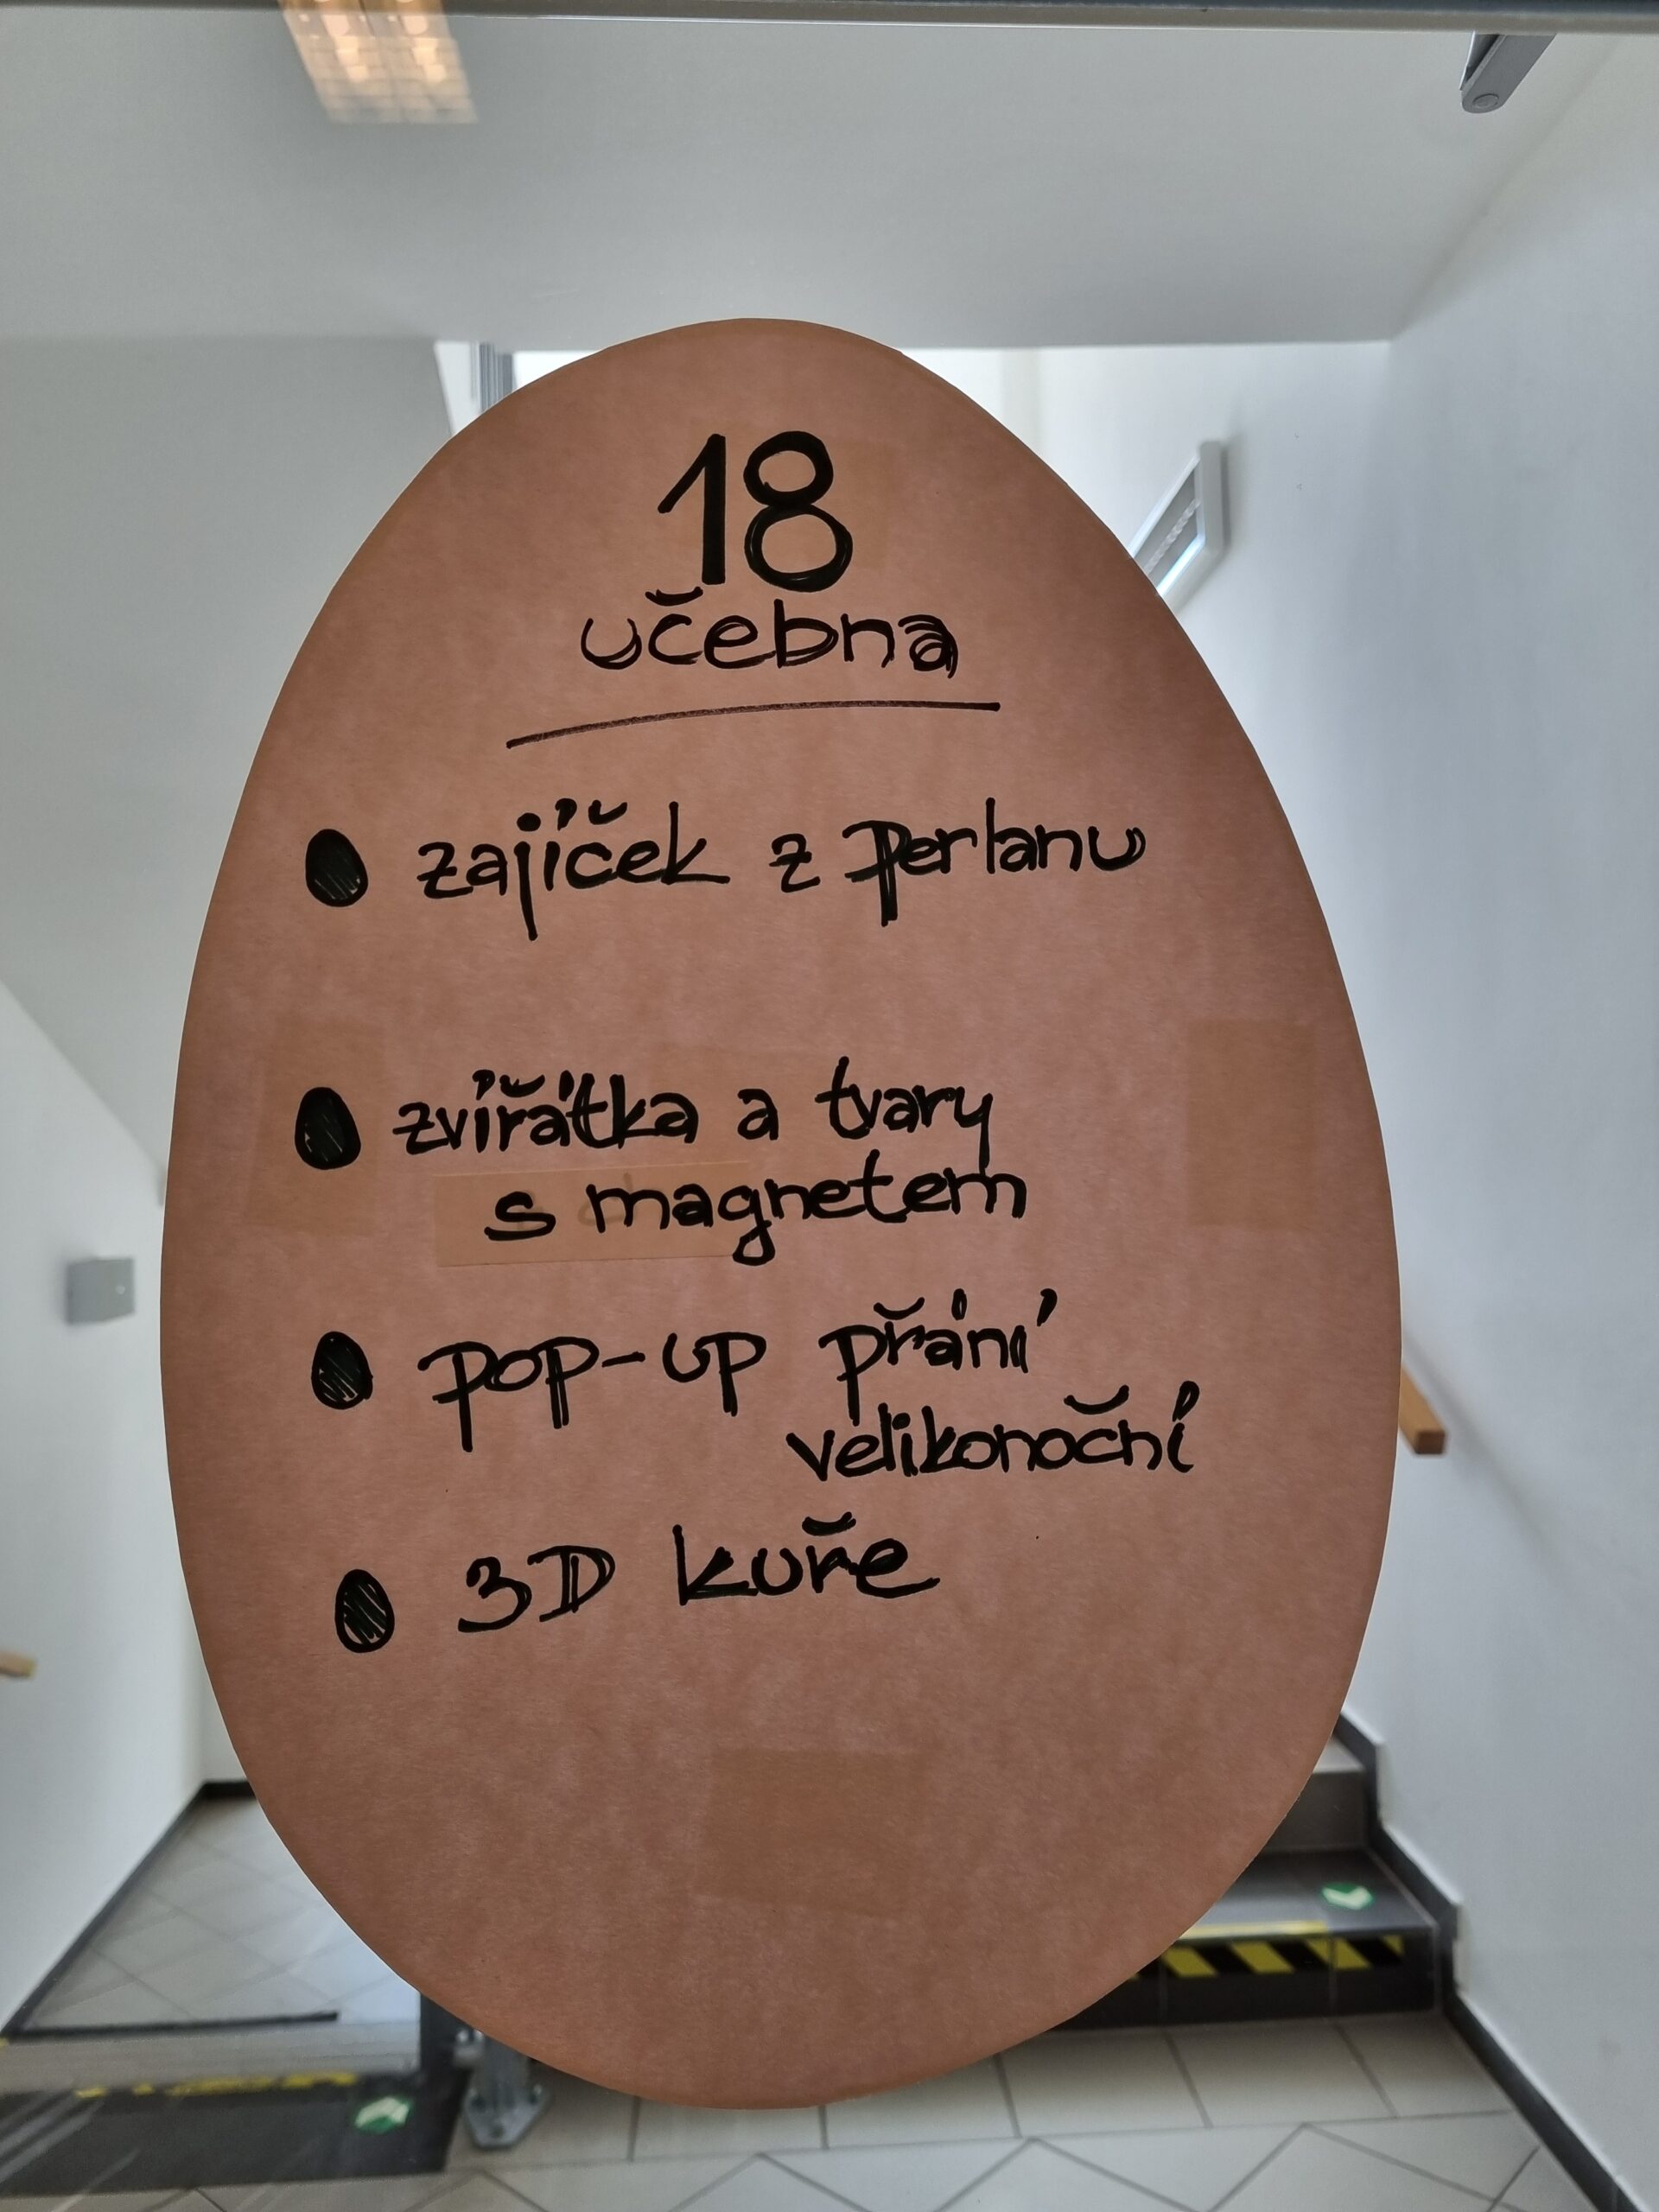 18
učebna
zajíček z perlanu
zvířátka a tvary
s magnetem
pop-up přání
velikonoční
3D kuře